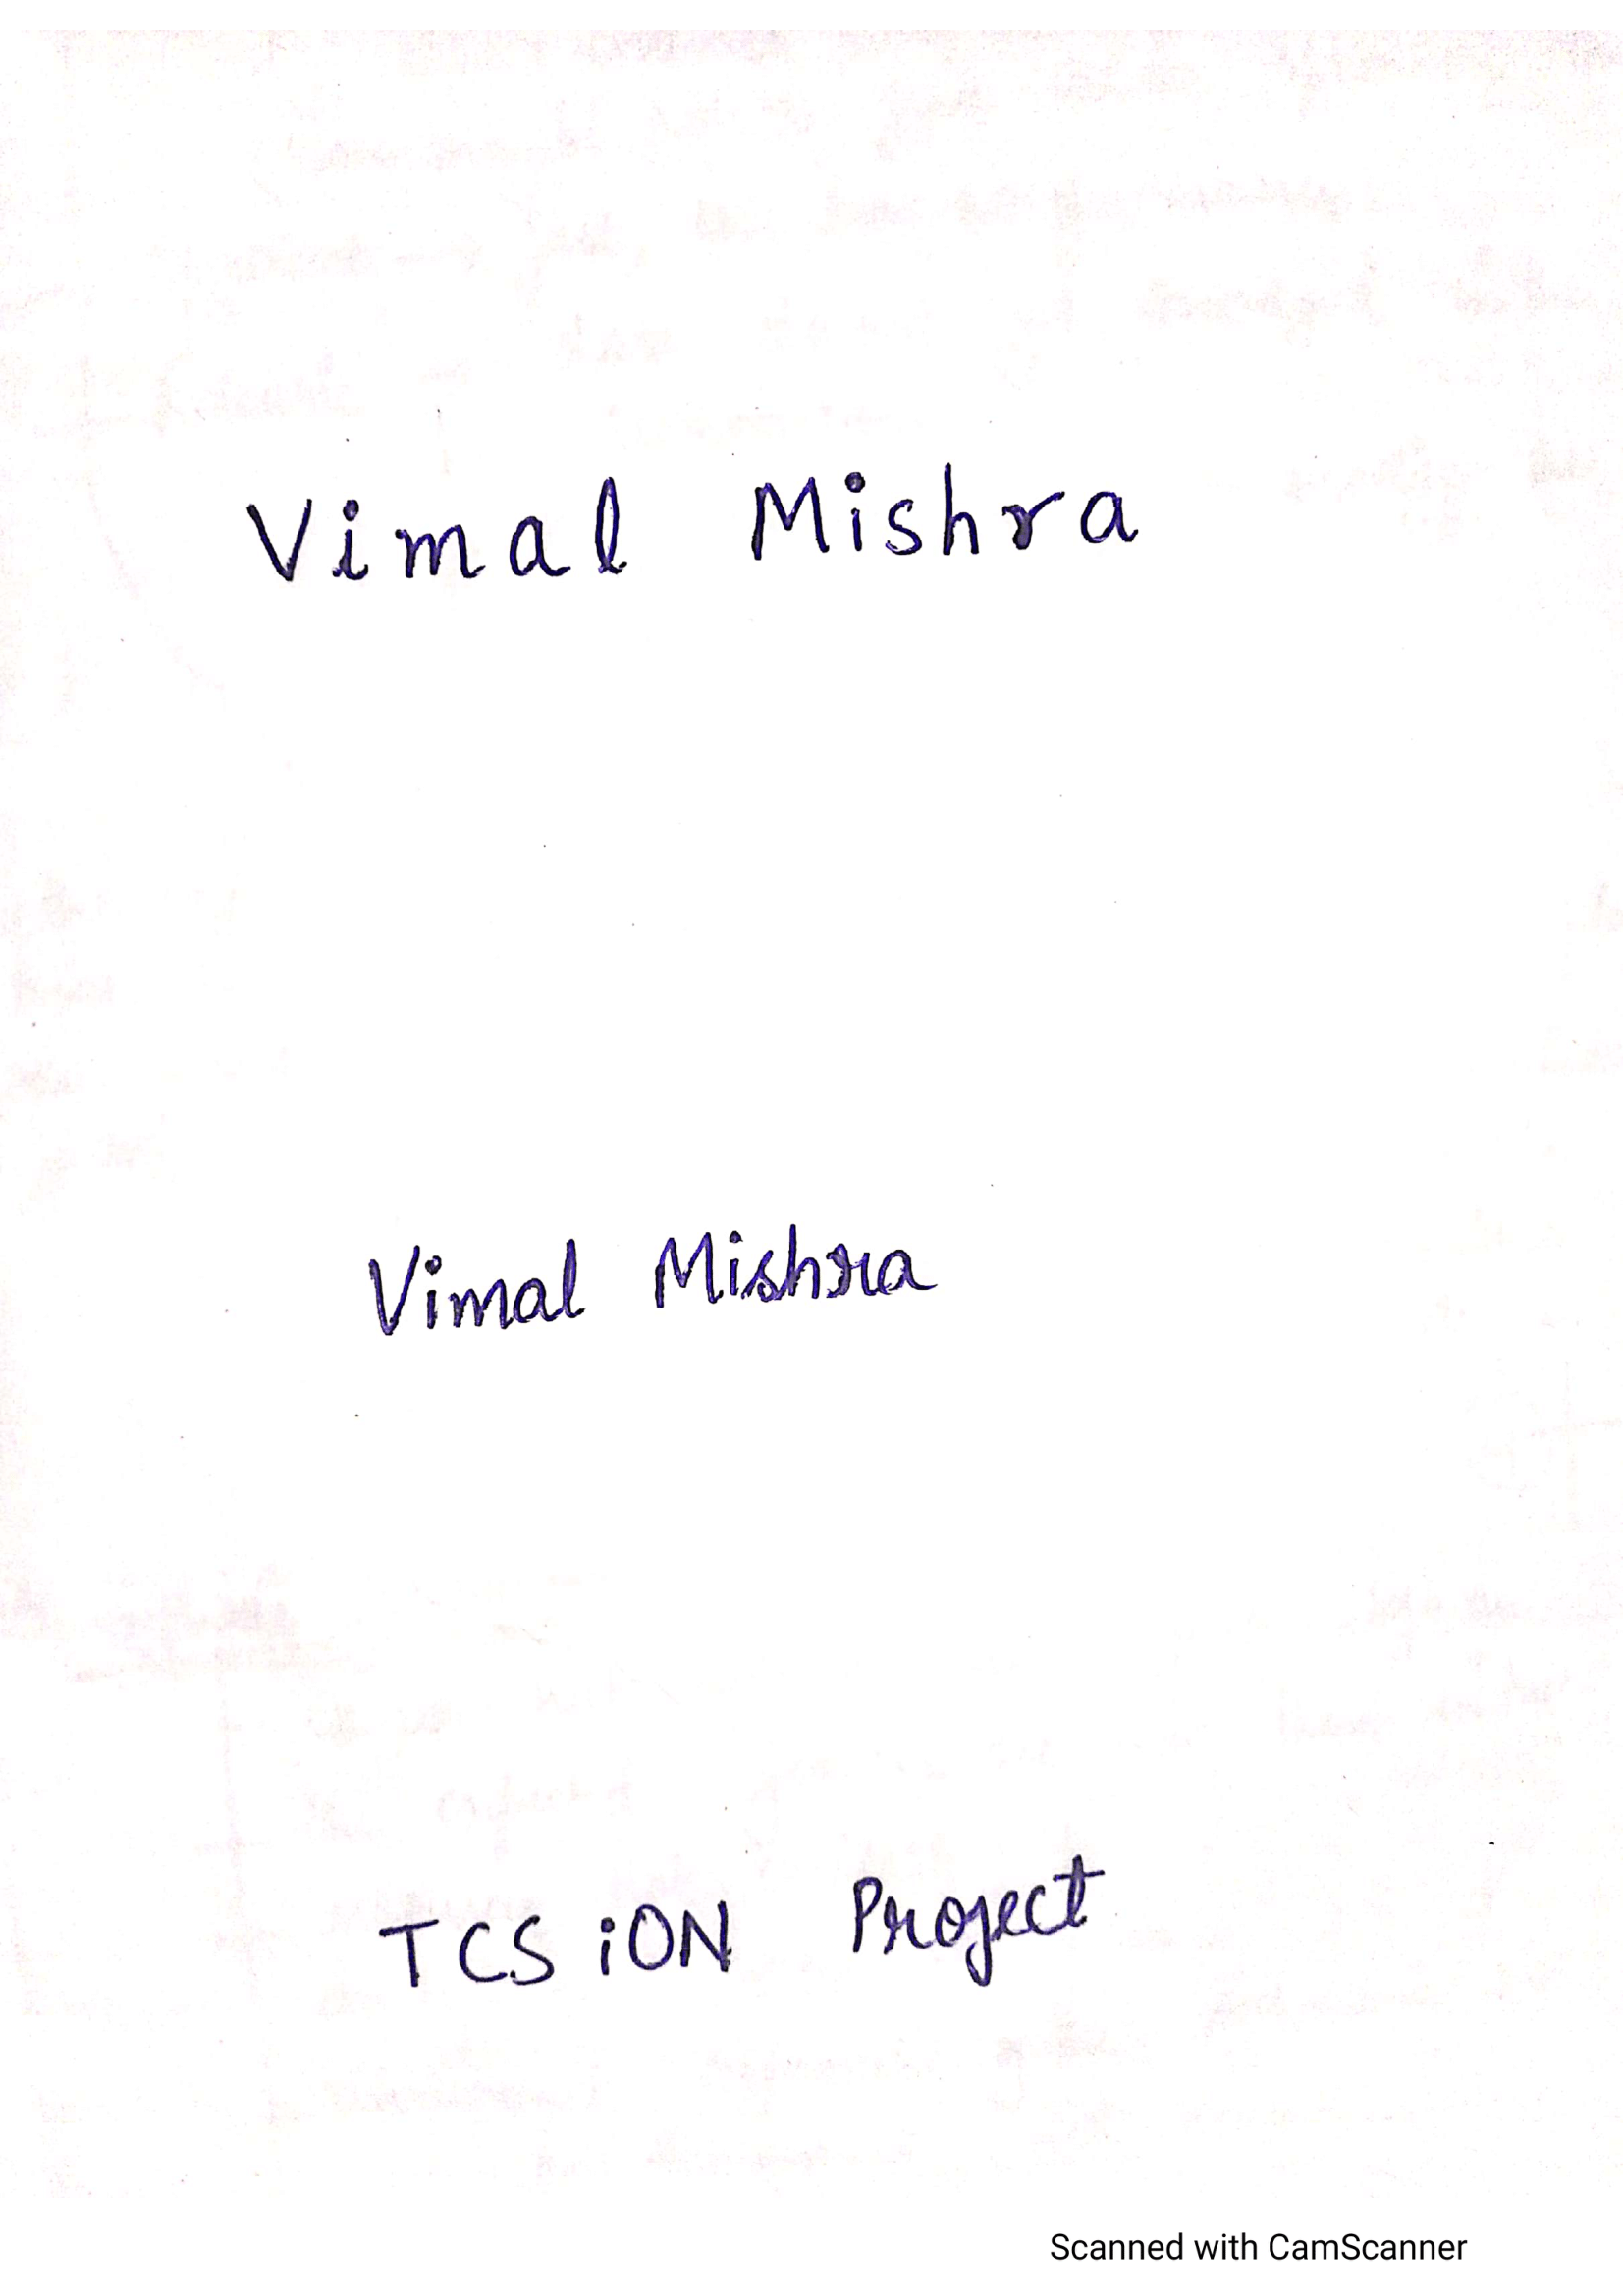 Vimal Mishra
Vimal Mishra
TCS iON Project
Scanned with CamScanner